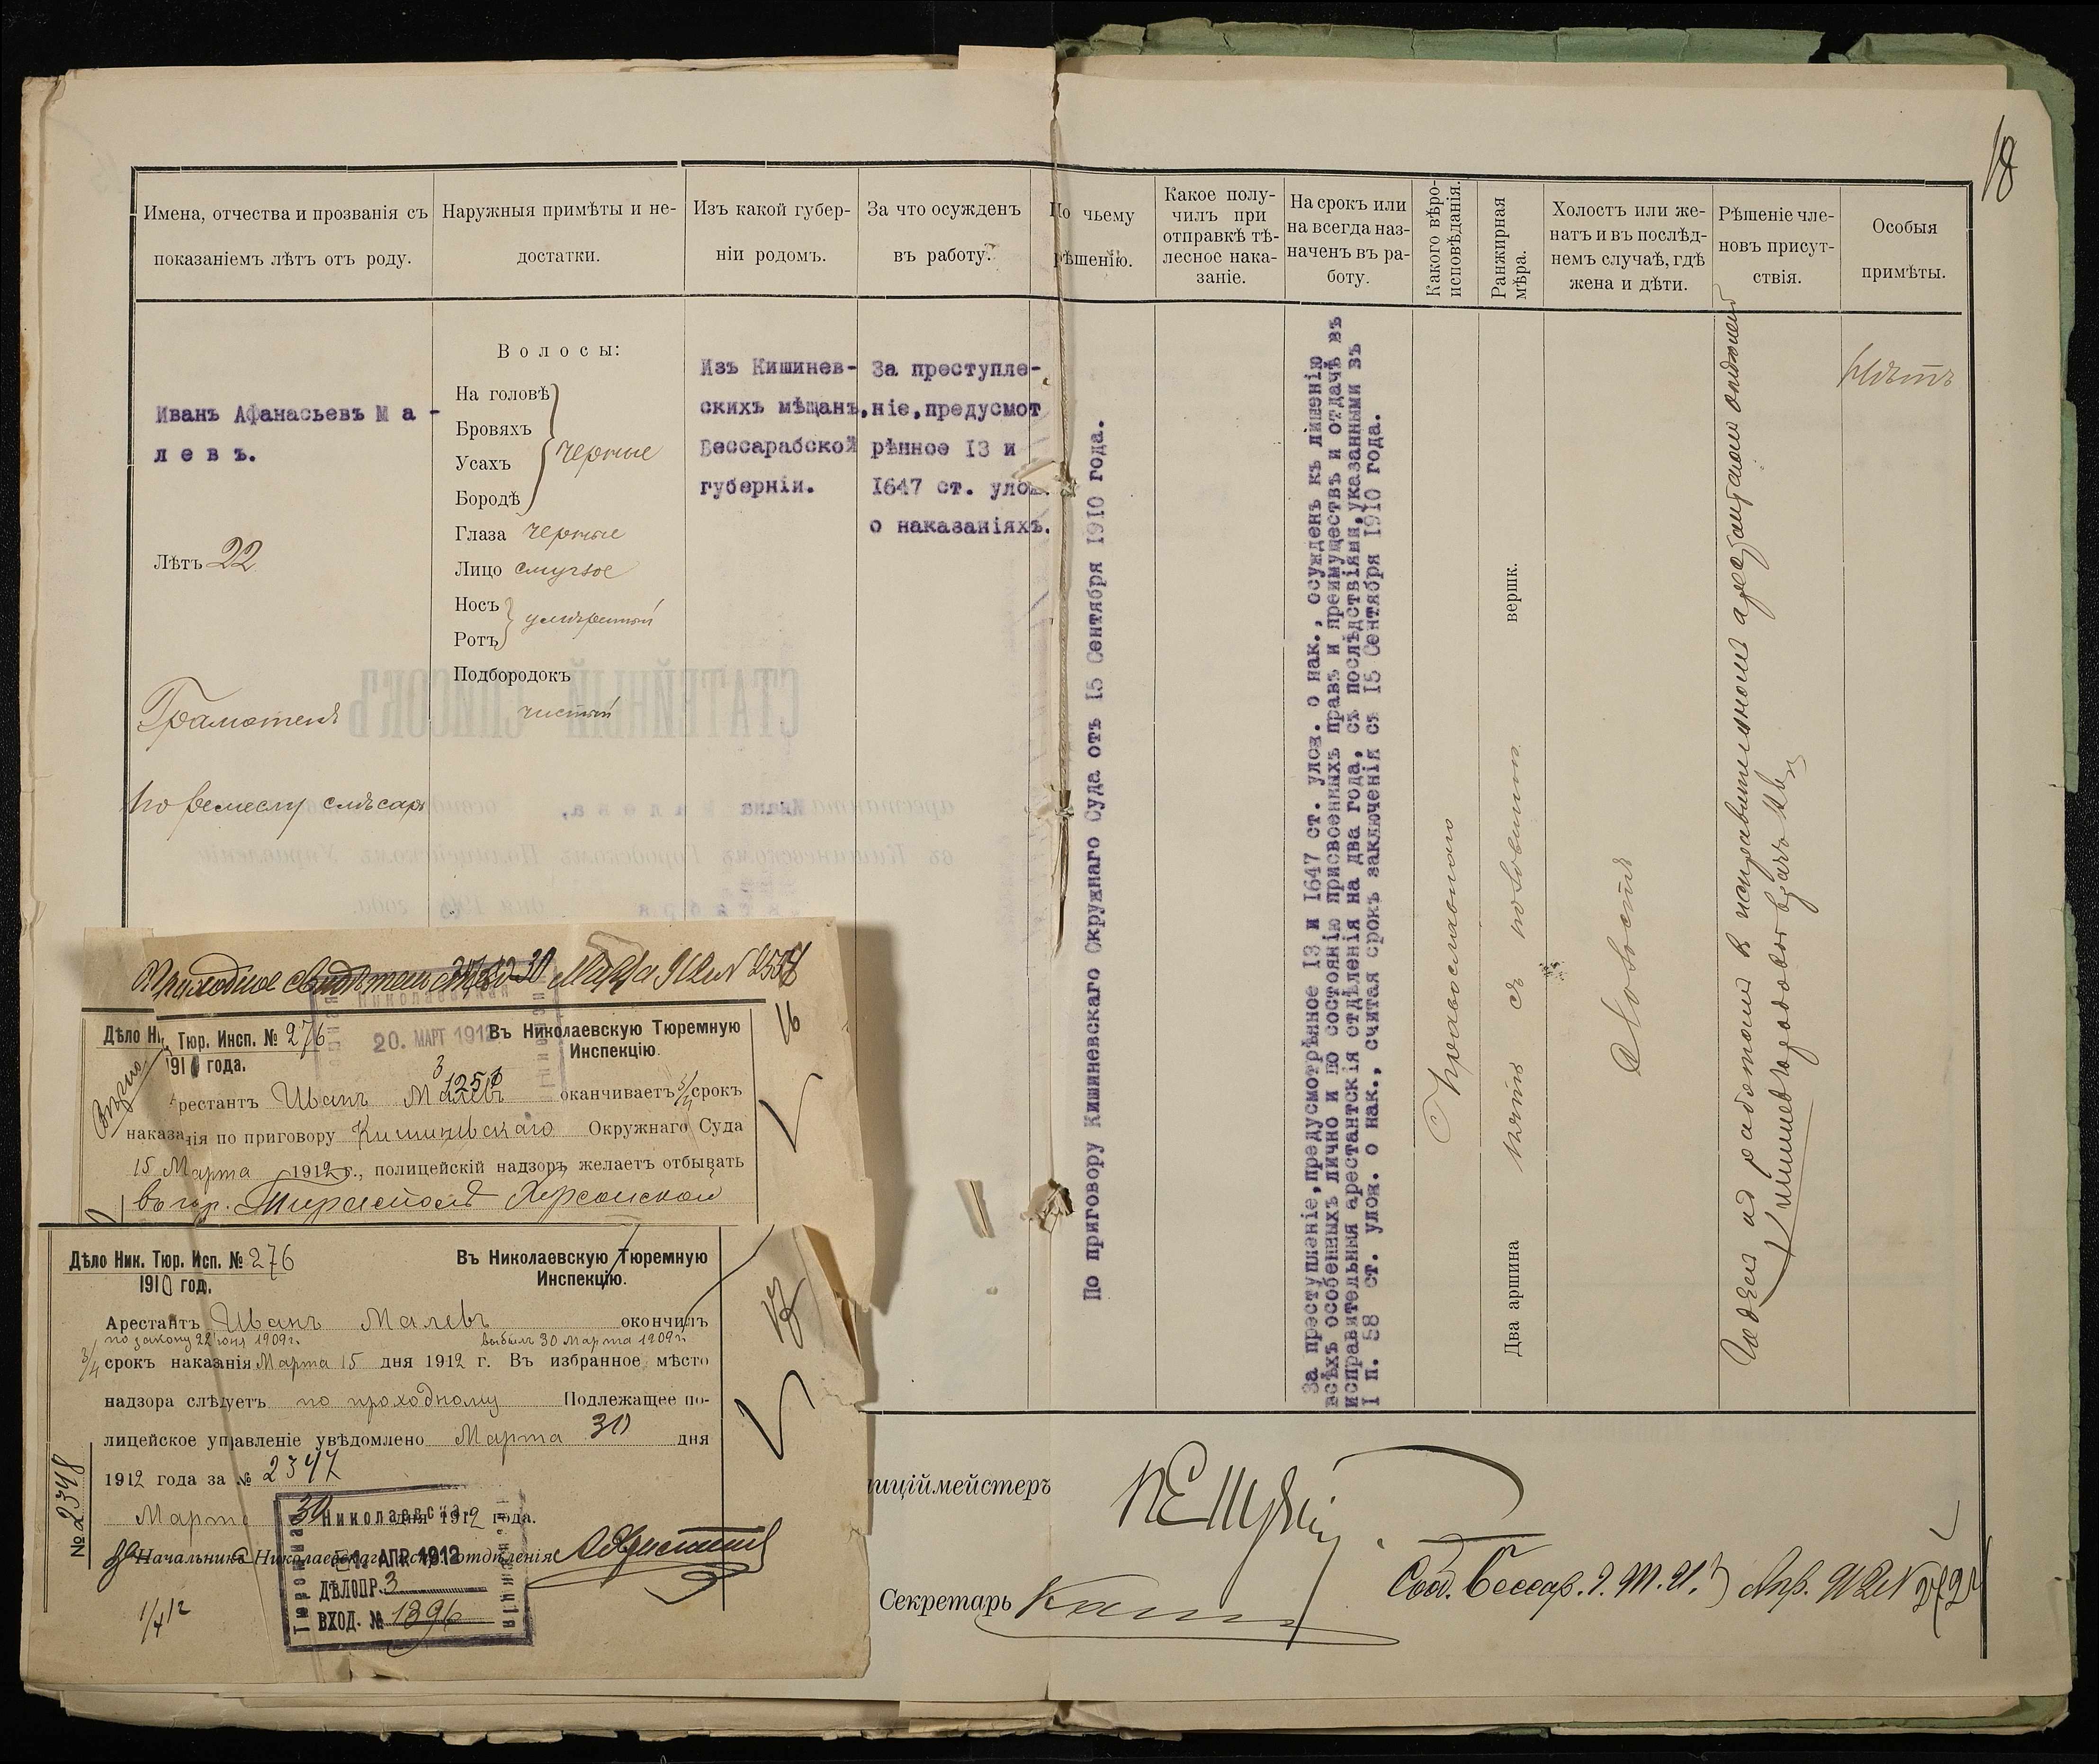 18
Имена, отчества и прозванія съ
показаніемъ лѣтъ отъ роду.
Наружныя примѣты и не-
достатки.
Изъ какой губер-
ніи родомъ.
За что осужденъ
въ работу.
По чьему
рѣшенію.
Какое полу-
чилъ при
отправкѣ тѣ-
лесное нака-
заніе.
На срокъ или
на всегда наз-
наченъ въ ра-
боту.
Какого вѣро-
исповѣданія.
Ранжирная
мѣра.
Холостъ или же-
натъ и въ послѣд-
немъ случаѣ, гдѣ
жена и дѣти.
Рѣшеніе чле-
новъ присут-
ствія.
Особыя
примѣты.
Иванъ Афанасьевъ М а -
л е в ъ.
Лѣтъ 22
Грамотенъ
по ремеслу слѣсарь
Волосы:
На головѣ
Бровяхъ
Усахъ
Бородѣ
черные
Глаза черные
Лицо смуглое
Носъ
Ротъ
умѣренный
Подбородокъ
чистый
Изъ Кишинев-
скихъ мѣщанъ,
Бессарабской
губерніи.
За преступле-
ніе,предусмот
рѣнное 13 и
1647 ст. улож.
о наказаніяхъ.
По приговору Кишиневскаго Окружнаго Суда отъ 15 Сентября 1910 года.
За преступленіе,предусмотрѣнное 13 и 1647 ст. улож. о нак., осужденъ къ лишенію
всѣхъ особенныхъ лично и по состоянію присвоенныхъ правъ и преимуществъ и отдачѣ въ
исправительныя арестантскія отдѣленія на два года, съ послѣдствіями,указанными въ
1 п. 58 ст. улож. о нак., считая срокъ заключенія съ 15 Сентября 1910 года.
Православнаго
Два аршина пять съ половиной вершк.
Холостъ
Годенъ къ работамъ въ исправительномъ арестантскомъ отдѣленіи
Кишинев. городовой врачъ
Нѣтъ
СТАТЕЙНЫЙ СПИСОКЪ
Проходное свидѣтельство 30 Марта 912 № 2354
Дѣло Н. Тюр. Инсп. № 276
1910 года.
Николаевская
20. МАРТ 1912
Въ Николаевскую Тюремную
Инспекцію.
Арестантъ Иванъ Малевъ оканчиваетъ 3/4 срокъ
наказанія по приговору Кишиневскаго Окружнаго Суда
15 Марта 1912 г., полицейскій надзоръ желаетъ отбывать
въ гор. Тирасполѣ Херсонской
16
Дѣло Ник. Тюр. Исп. № 276
1910 год.
Въ Николаевскую Тюремную
Инспекцію.
Арестантъ Иванъ Малевъ окончилъ
по закону 22 іюня 1909 г. выбылъ 30 Марта 1909 г.
3/4 срокъ наказанія Марта 15 дня 1912 г. Въ избранное мѣсто
надзора слѣдуетъ по проходному Подлежащее по-
лицейское управленіе увѣдомлено Марта 30 дня
1912 года за № 2347
Марта 30 дня 1912 года.
№ 2348
за Начальника Николаевскаго отдѣленія
Николаевская
Тюремная
Инспекція
1. АПР. 1912
ДѢЛОПР. 3
ВХОД. № 1396
1/4 12
Полиціймейстеръ
Секретарь
Сооб. Бессар. Г. Т. И. 3 Апр. 912 №